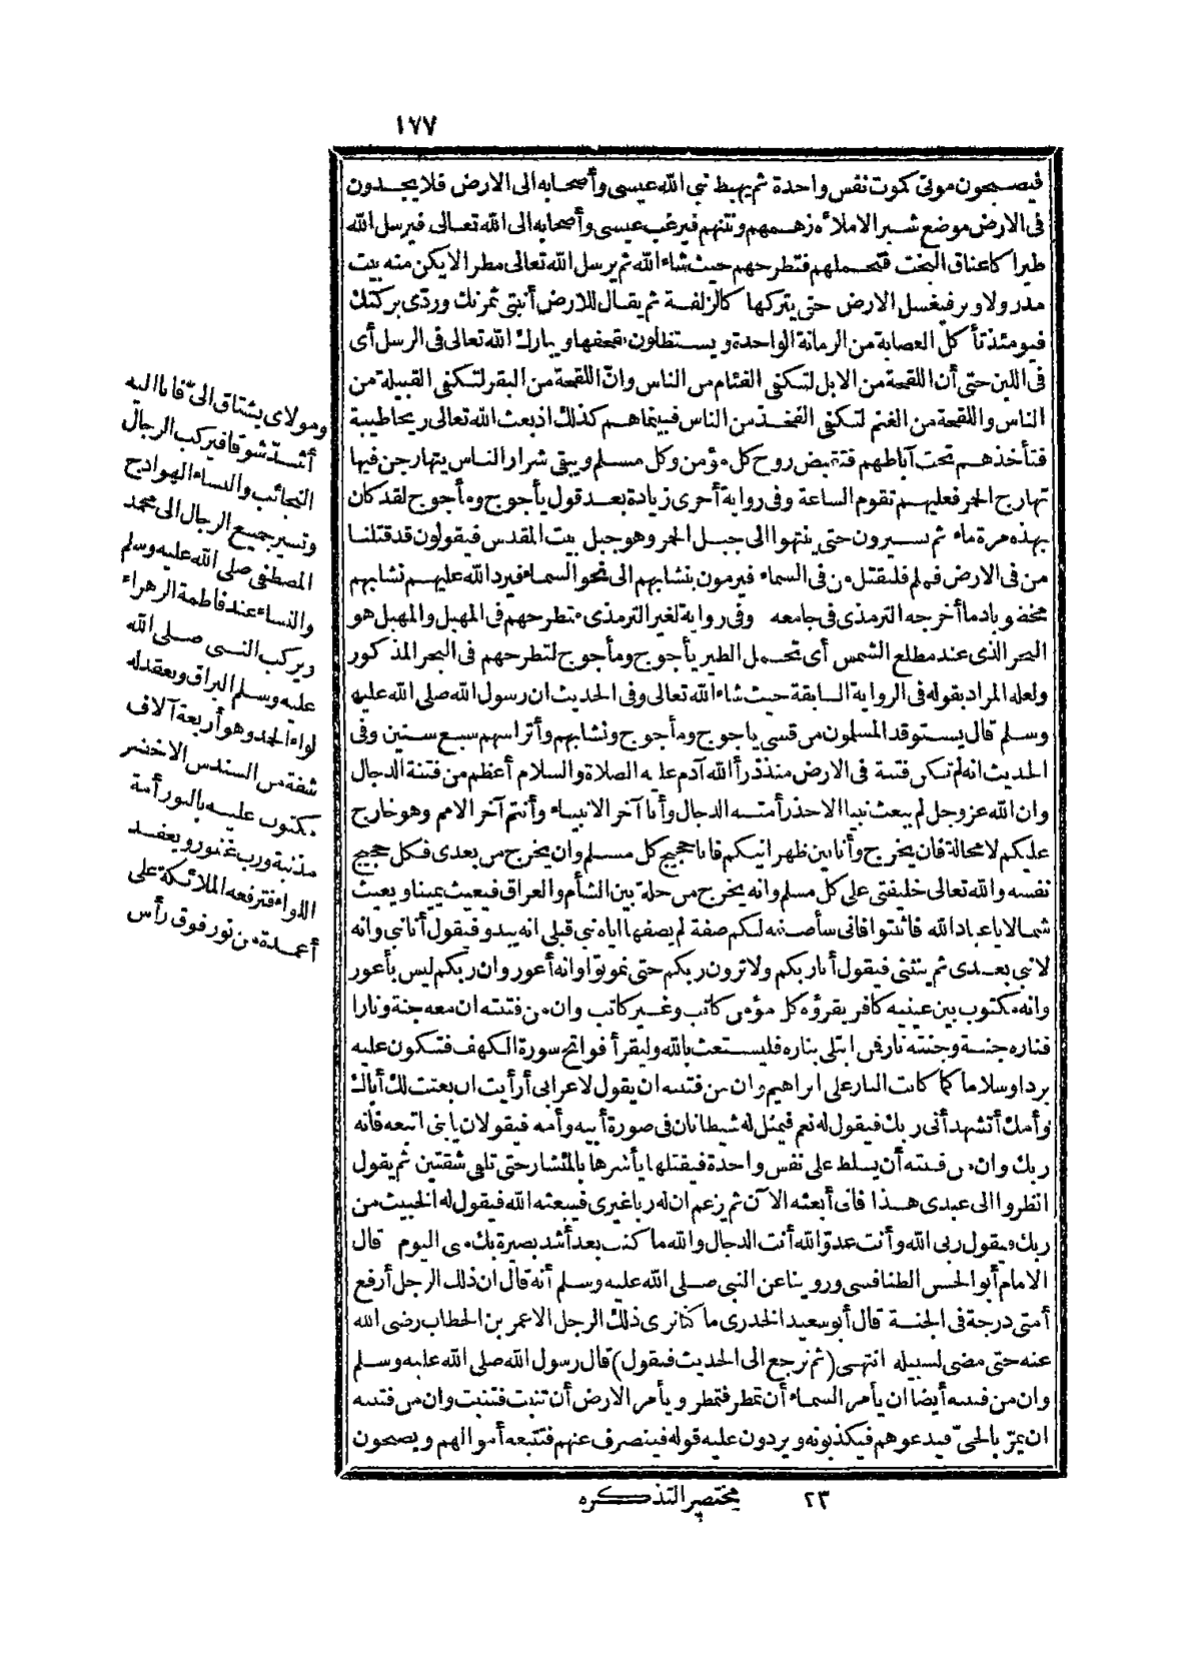 ١٧٧
فيصبحون موتى كموت نفس واحدة ثم يهبط نبى الله عيسى وأصحابه الى الارض فلا يجدون
فى الارض موضع شبر الاملأه زهمهم ونتنهم فيرغب عيسى وأصحابه الى الله تعالى فيرسل الله
طيرا كاعناق البخت فتحملهم فتطرحهم حيث شاء الله ثم يرسل الله تعالى مطر الايكن منه بيت
مدر ولا وبر فيغسل الارض حتى يتركها كالزلفة ثم يقال للارض أنبتى ثمرتك وردّى بركتك
فيومئذ تأكل العصابة من الرمانة الواحدة ويستظلون بقحفها ويبارك الله تعالى فى الرسل أى
فى اللبن حتى أن اللقحة من الابل لتكفى الفئام من الناس وانّ اللقحة من البقر لتكفى القبيلة من
الناس واللقحة من الغنم لتكفى الفخذ من الناس فبينماهم كذلك اذ بعث الله تعالى ريحا طيبة
فتأخذهم تحت آباطهم فتقبض روح كل مؤمن وكل مسلم ويبقى شرار الناس يتهارجن فيها
تهارج الحمر فعليهم تقوم الساعة وفى رواية أخرى زيادة بعد قول يأجوج ومأجوج لقد كان
بهذه مرة ماء ثم يسيرون حتى ينتهوا الى جبل الخمر وهو جبل بيت المقدس فيقولون قد قتلنا
من فى الارض فهلم فلنقتل من فى السماء فيرمون بنشابهم الى نحو السماء فيرد الله عليهم نشابهم
مخضوبا دما أخرجه الترمذى فى جامعه وفى رواية لغير الترمذى فتطرحهم فى المهبل والمهبل هو
البحر الذى عند مطلع الشمس أى تحمل الطير يأجوج ومأجوج لتطرحهم فى البحر المذكور
ولعله المراد بقوله فى الرواية السابقة حيث شاء الله تعالى وفى الحديث ان رسول الله صلى الله عليه
وسلم قال يستوقد المسلمون من قسى ياجوج ومأجوج ونشابهم وأتراسهم سبع سنين وفى
الحديث انه لم تكن فتنة فى الارض منذ ذرأ الله آدم عليه الصلاة والسلام أعظم من فتنة الدجال
وان الله عز وجل لم يبعث نبيا الاحذر أمته الدجال وأنا آخر الانبياء وأنتم آخر الامم وهو خارج
عليكم لا محالة فان يخرج وأنا بين ظهرانيكم فانا حجيج كل مسلم وان يخرج من بعدى فكل حجيج
نفسه والله تعالى خليفتى على كل مسلم وانه يخرج من حلة بين الشأم والعراق فيعيث يمينا ويعيث
شمالا ياعباد الله فاثبتوا فانى سأصفه لكم صفة لم يصفها اياه نبى قبلى انه يبدو فيقول أنا نبى وانه
لا نبى بعدى ثم يثنى فيقول أنا ربكم ولا ترون ربكم حتى تموتوا وانه أعور وان ربكم ليس بأعور
وانه مكتوب بين عينيه كافر يقرؤه كل مؤمن كاتب وغير كاتب وان من فتنته ان معه جنة ونارا
فناره جنة وجنته نار فمن ابتلى بناره فليستعث بالله وليقرأ فواتح سورة الكهف فتكون عليه
بردا وسلاما كما كانت النار على ابراهيم وان من فتنته ان يقول لاعرابى أرأيت ان بعثت لك أباك
وأمك أتشهد أنى ربك فيقول له نعم فيمثل له شيطانان فى صورة أبيه وأمه فيقولان يابنى اتبعه فانه
ربك وان من فتنته أن يسلط على نفس واحدة فيقتلها يأشرها بالمنشار حتى تلقى شقتين ثم يقول
انظروا الى عبدى هذا فانى أبعثه الآن ثم يزعم ان له ربا غيرى فيبعثه الله فيقول له الخبيث من
ربك فيقول ربى الله وأنت عدوّ الله أنت الدجال والله ما كنت بعد أشد بصيرة بك منى اليوم قال
الامام أبو الحسن الطنافسى وروينا عن النبى صلى الله عليه وسلم أنه قال ان ذلك الرجل أرفع
أمتى درجة فى الجنة قال أبو سعيد الخدرى ما كنا نرى ذلك الرجل الاعمر بن الخطاب رضى الله
عنه حتى مضى لسبيله انتهى (ثم نرجع الى الحديث فيقول) قال رسول الله صلى الله عليه وسلم
وان من فتنته أيضا ان يأمر السماء أن تمطر فتمطر ويأمر الارض أن تنبت فتنبت وان من فتنته
ان يمرّ بالحىّ فيدعوهم فيكذبونه ويردون عليه قوله فينصرف عنهم فتتبعه أموالهم ويصبحون
ومولاى يشتاق الىّ فانا اليه
أشدّ شوقا فيركب الرجال
النجائب والنساء الهوادج
وتسير جميع الرجال الى محمد
المصطفى صلى الله عليه وسلم
والنساء عند فاطمة الزهراء
ويركب النبى صلى الله
عليه وسلم البراق ويعقد له
لواء الحمد وهو أربعة آلاف
شقة من السندس الاخضر
مكتوب عليه بالنور أمة
مذنبة ورب غفور ويعقد
اللواء فترفعه الملائكة على
أعمدة من نور فوق رأس
٢٣ مختصر التذكره